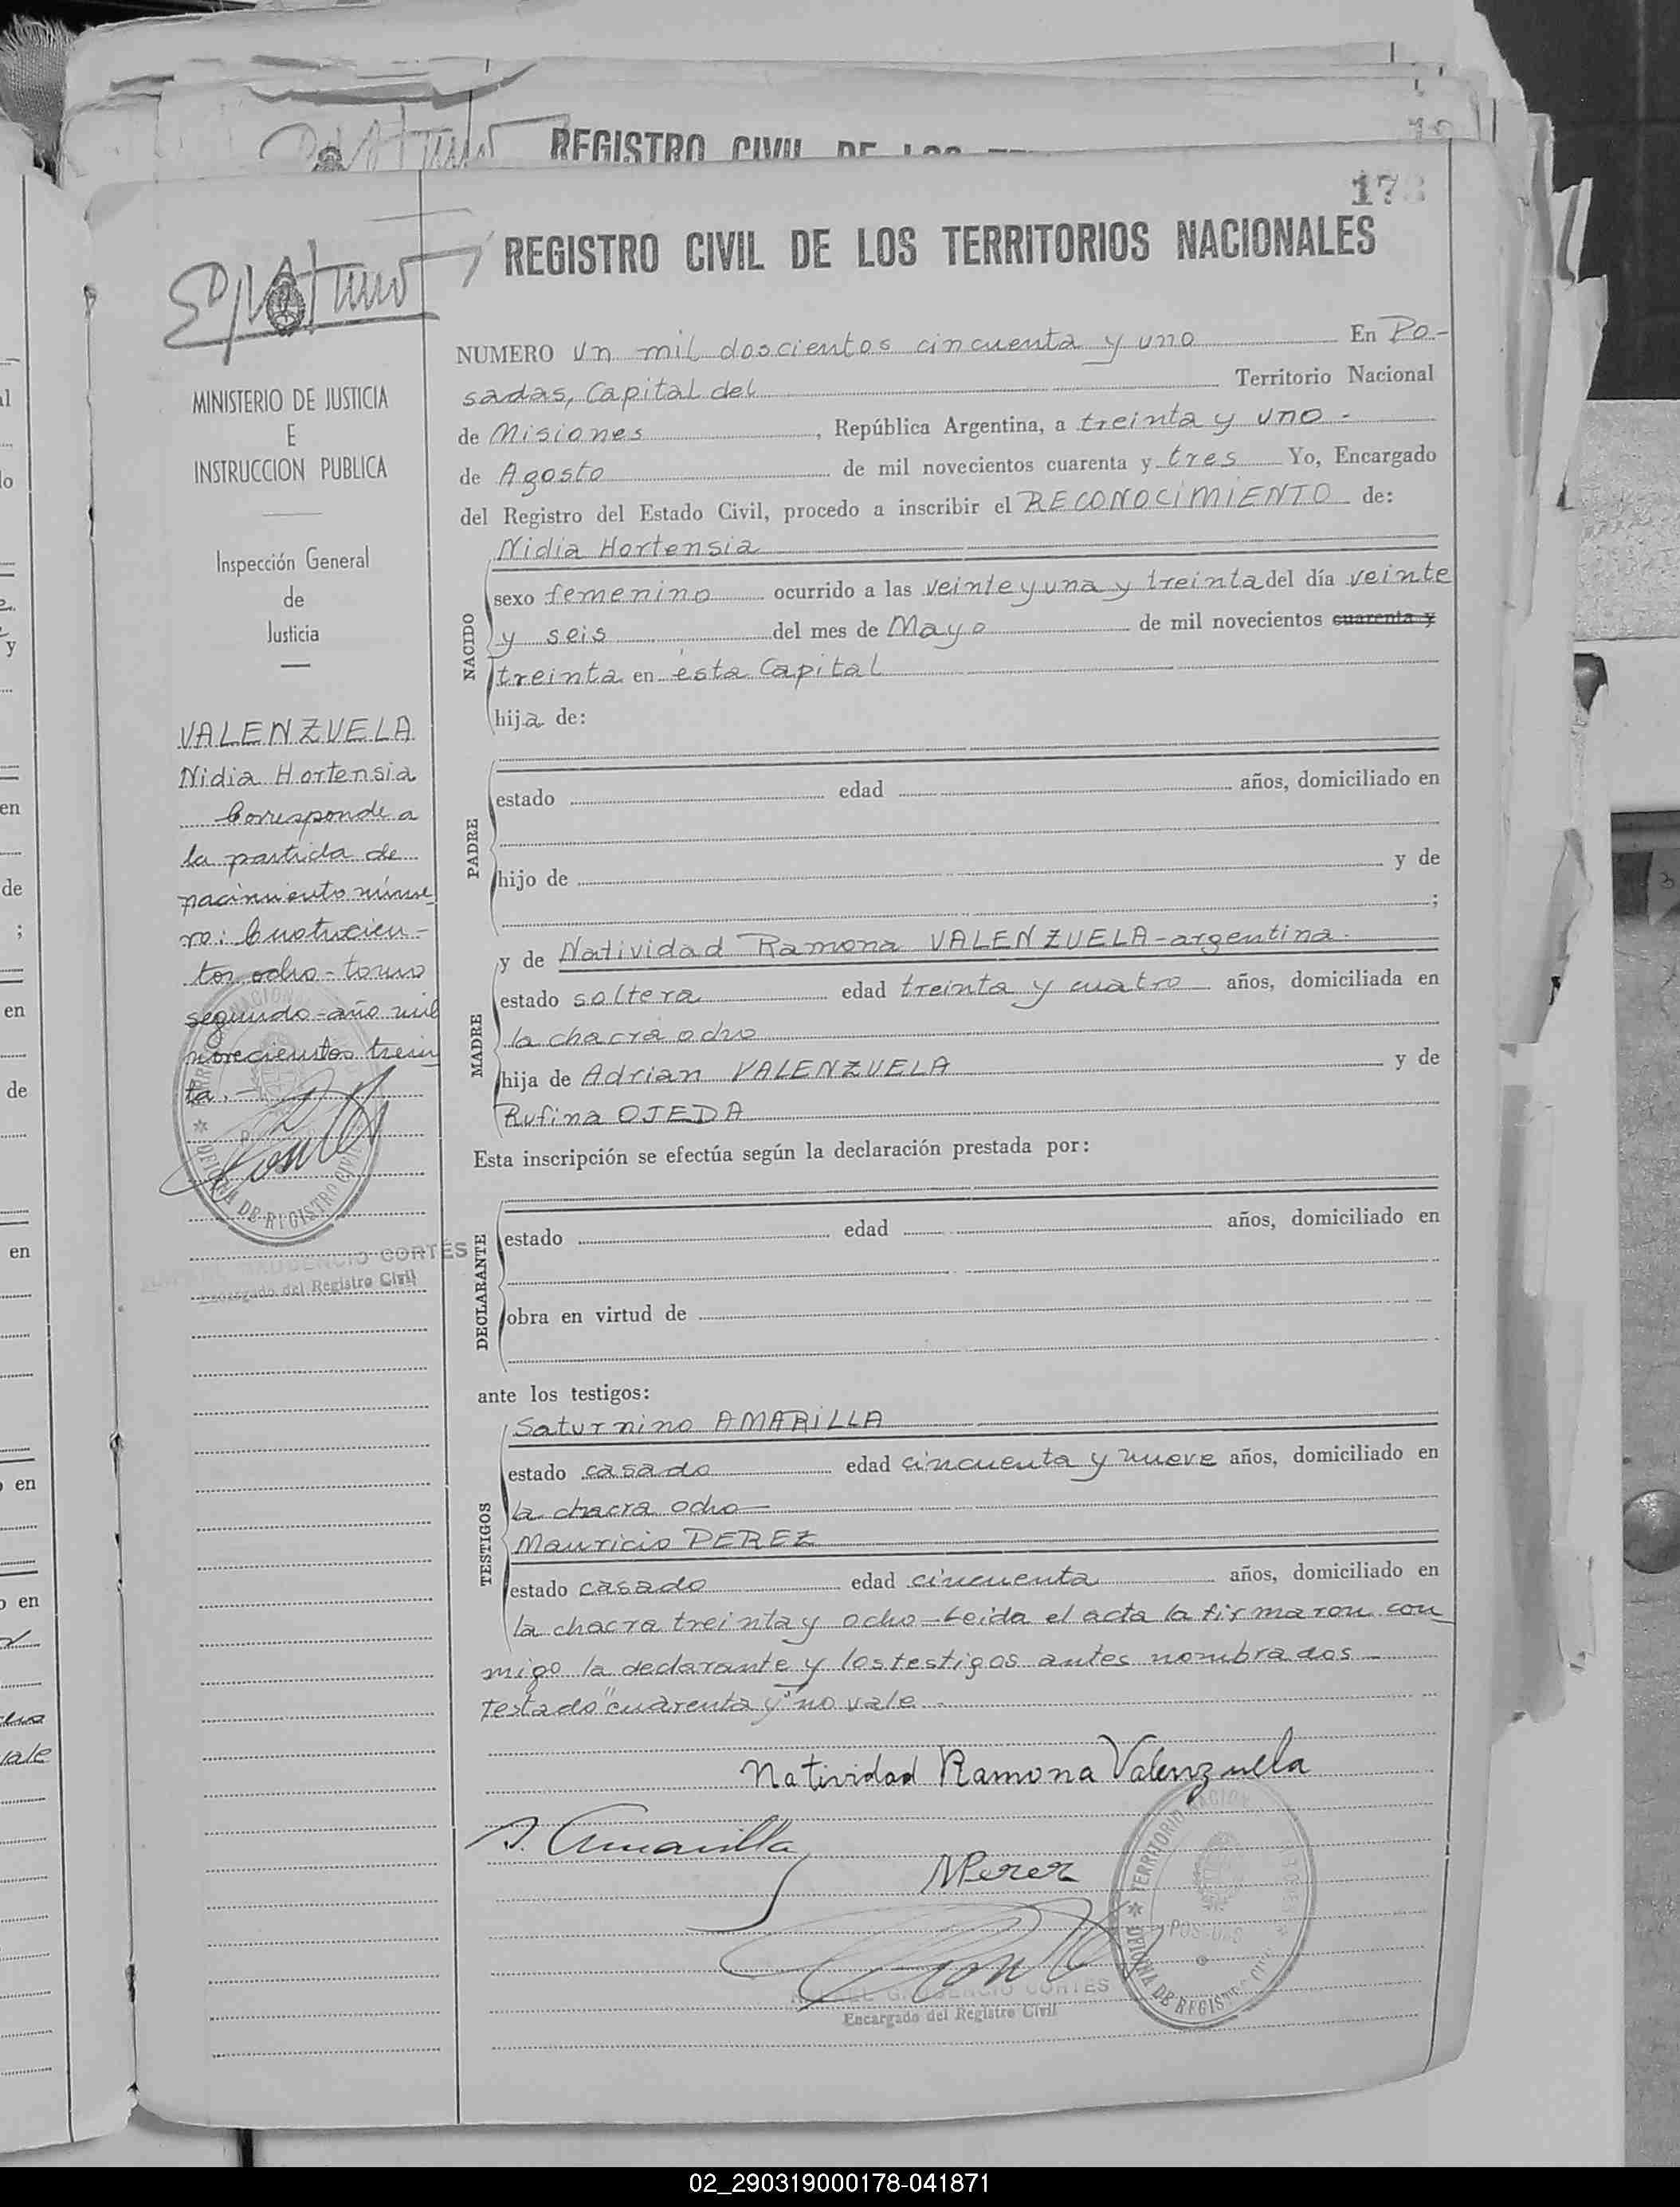 REGISTRO CIVIL DE LOS
17
REGISTRO CIVIL DE LOS TERRITORIOS NACIONALES
MINISTERIO DE JUSTICIA
E
INSTRUCCION PUBLICA
Inspección General
de
Justicia
VALENZUELA
Nidia Hortensia
Corresponde a
la partida de
nacimiento núme
ro: Cuatrocien-
tos ocho - tomo
segundo - año mil
novecientos trein
ta.-
OFICINA DE REGISTRO CIVIL
GAUDENCIO CORTÉS
Encargado del Registro Civil
NUMERO un mil doscientos cincuenta y uno En Po-
sadas, Capital del Territorio Nacional
de Misiones, República Argentina, a treinta y uno -
de Agosto de mil novecientos cuarenta y tres Yo, Encargado
del Registro del Estado Civil, procedo a inscribir el RECONOCIMIENTO de:
NACIDO
Nidia Hortensia
sexo femenino ocurrido a las veinte y una y treinta del día veinte
y seis del mes de Mayo de mil novecientos cuarenta y
treinta en ésta Capital
hija de:
PADRE
estado edad años, domiciliado en
hijo de y de
;
MADRE
y de Natividad Ramona VALENZUELA - argentina.
estado soltera edad treinta y cuatro años, domiciliada en
la chacra ocho
hija de Adrian VALENZUELA y de
Rufina OJEDA
Esta inscripción se efectúa según la declaración prestada por:
DECLARANTE
estado edad años, domiciliado en
obra en virtud de
ante los testigos:
TESTIGOS
Saturnino AMARILLA
estado casado edad cincuenta y nueve años, domiciliado en
la chacra ocho
Mauricio PEREZ
estado casado edad cincuenta años, domiciliado en
la chacra treinta y ocho - Leida el acta la firmaron con
migo la declarante y los testigos antes nombrados -
Testado "cuarenta y" no vale -
Natividad Ramona Valenzuela
S. Amarilla
MPerez
TERRITORIO NACIONAL
POSADAS
OFICINA DE REGISTRO CIVIL
RAFAEL GAUDENCIO CORTES
Encargado del Registro Civil
02_290319000178-041871